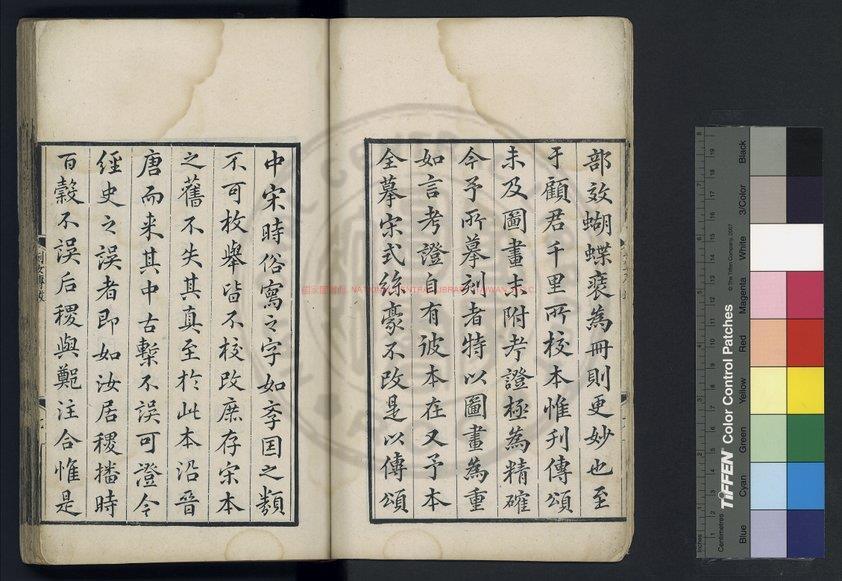 部效蝴蝶裝為冊則更妙也至
于顧君千里所校本惟刋傳頌
未及圖畫未附考證極為精確
今予所摹刻者特以圖畫為重
如言考證自有彼本在又予本
全摹宋式絲豪不改是以傳頌
中宋時俗寫之字如孝国之類
不可枚舉皆不校改庶存宋本
之舊不失其真至於此本沿晉
唐而来其中古槧不誤可證今
經史之誤者即如汝居稷播時
百糓不誤后稷與鄭注合惟是
國家圖書館 NATIONAL CENTRAL LIBRARY, TAIWAN (R.O.C)
TIFFEN Color Control Patches
© The Tiffen Company, 2007
Blue
Cyan
Green
Yellow
Red
Magenta
White
3/Color
Black
Inches
Centimetres